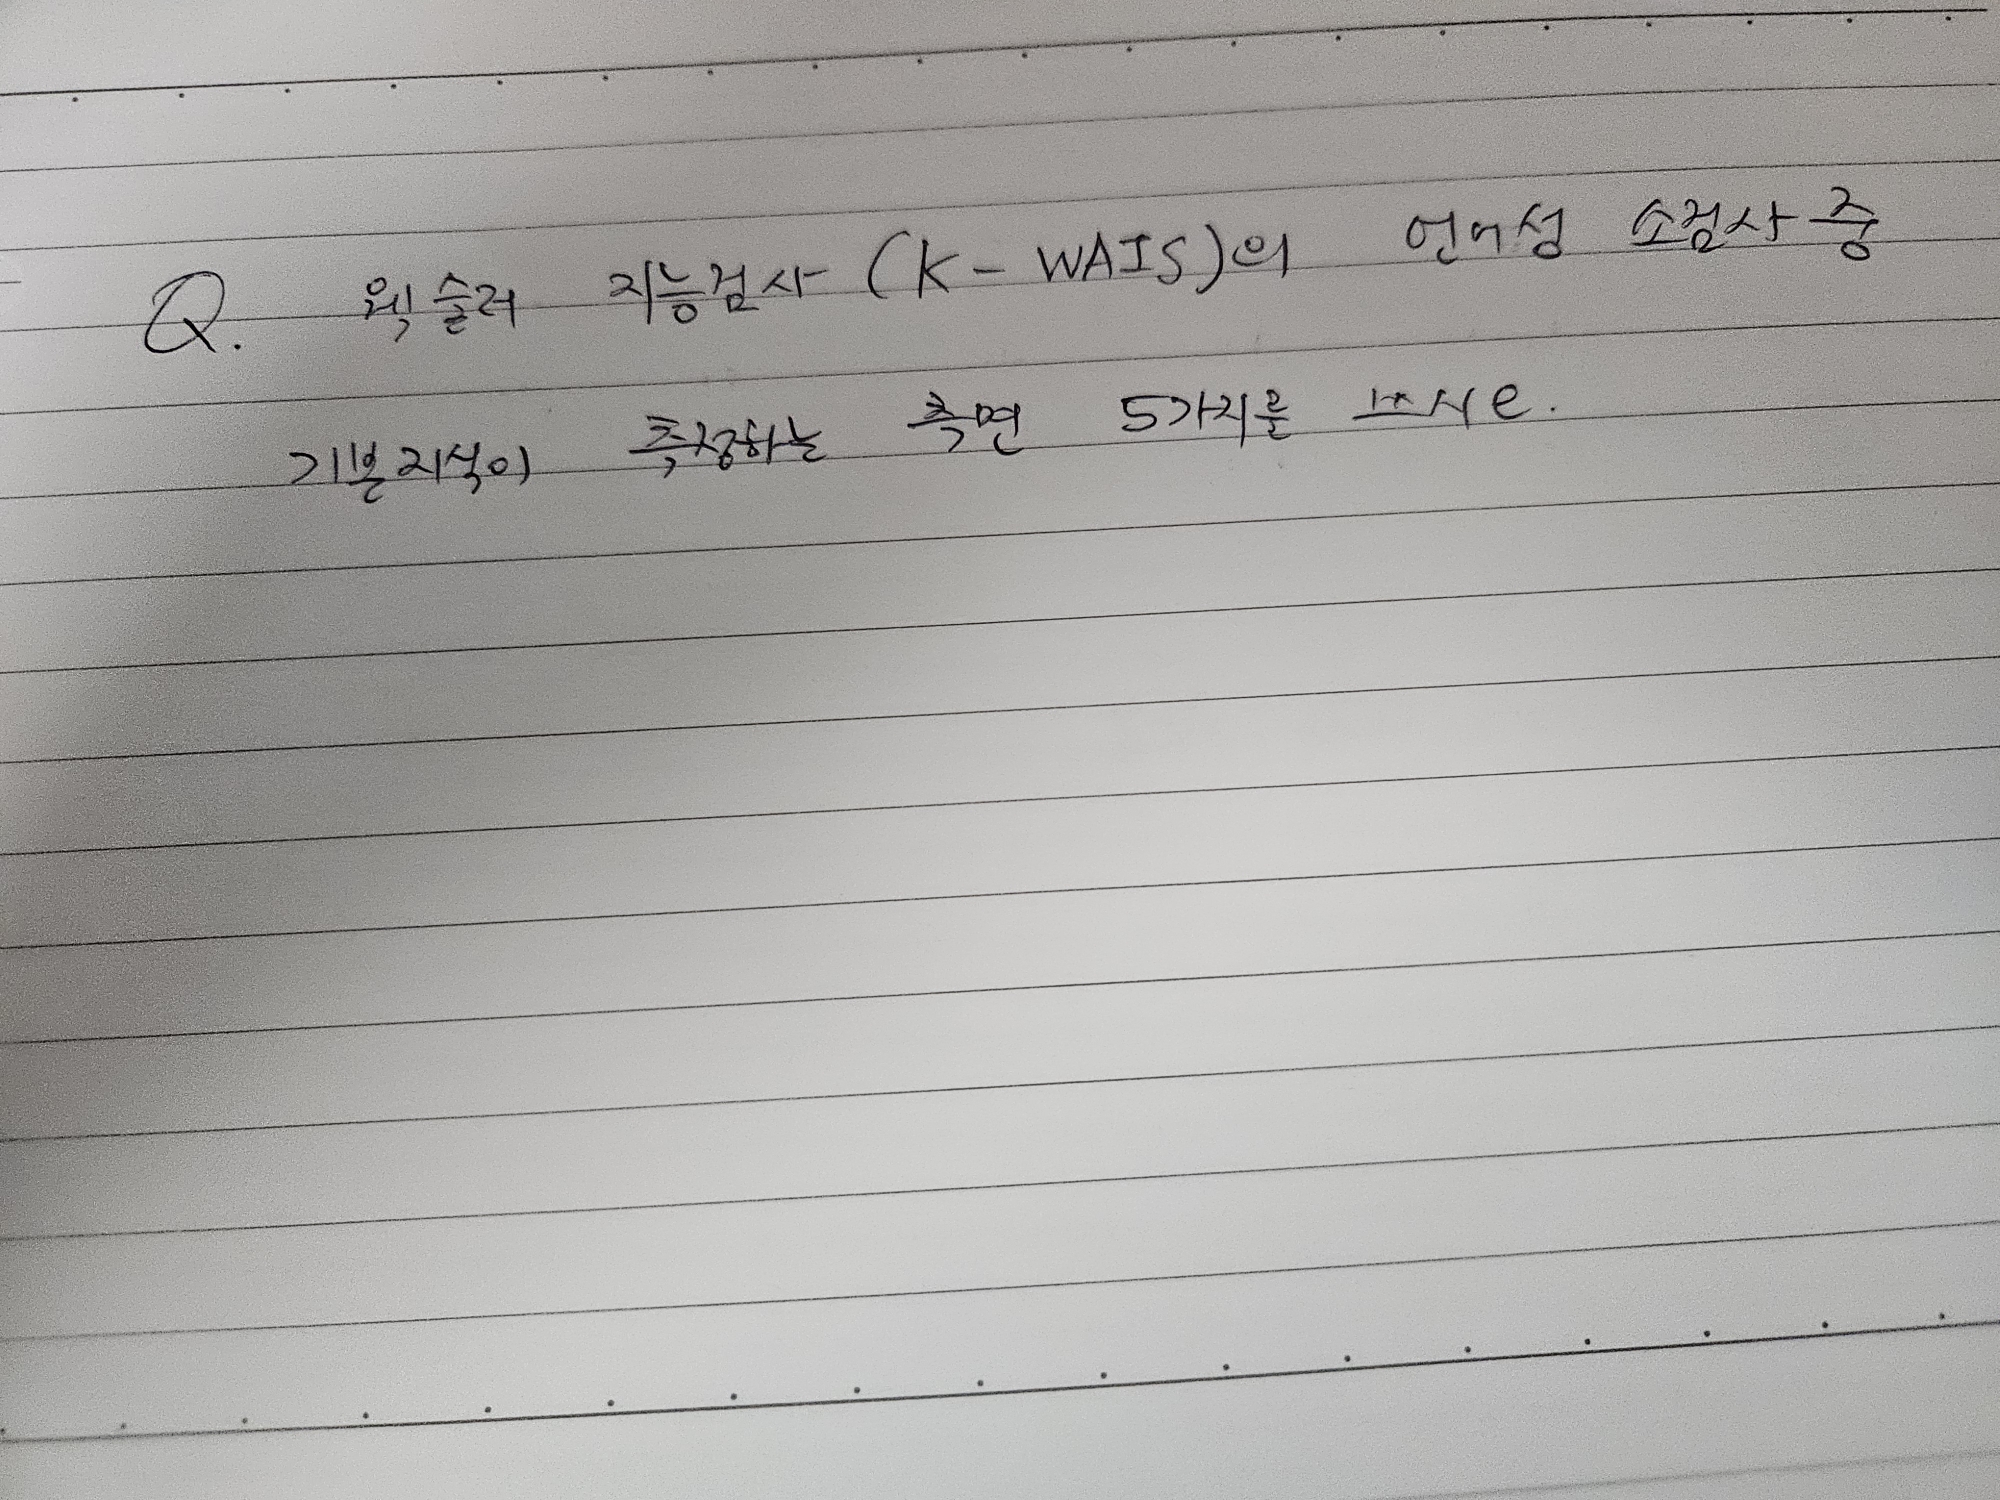 Q. 웩슬러 지능검사 (K-WAIS)의 언어성 소검사 중
기본지식이 측정하는 측면 5가지를 쓰시오.